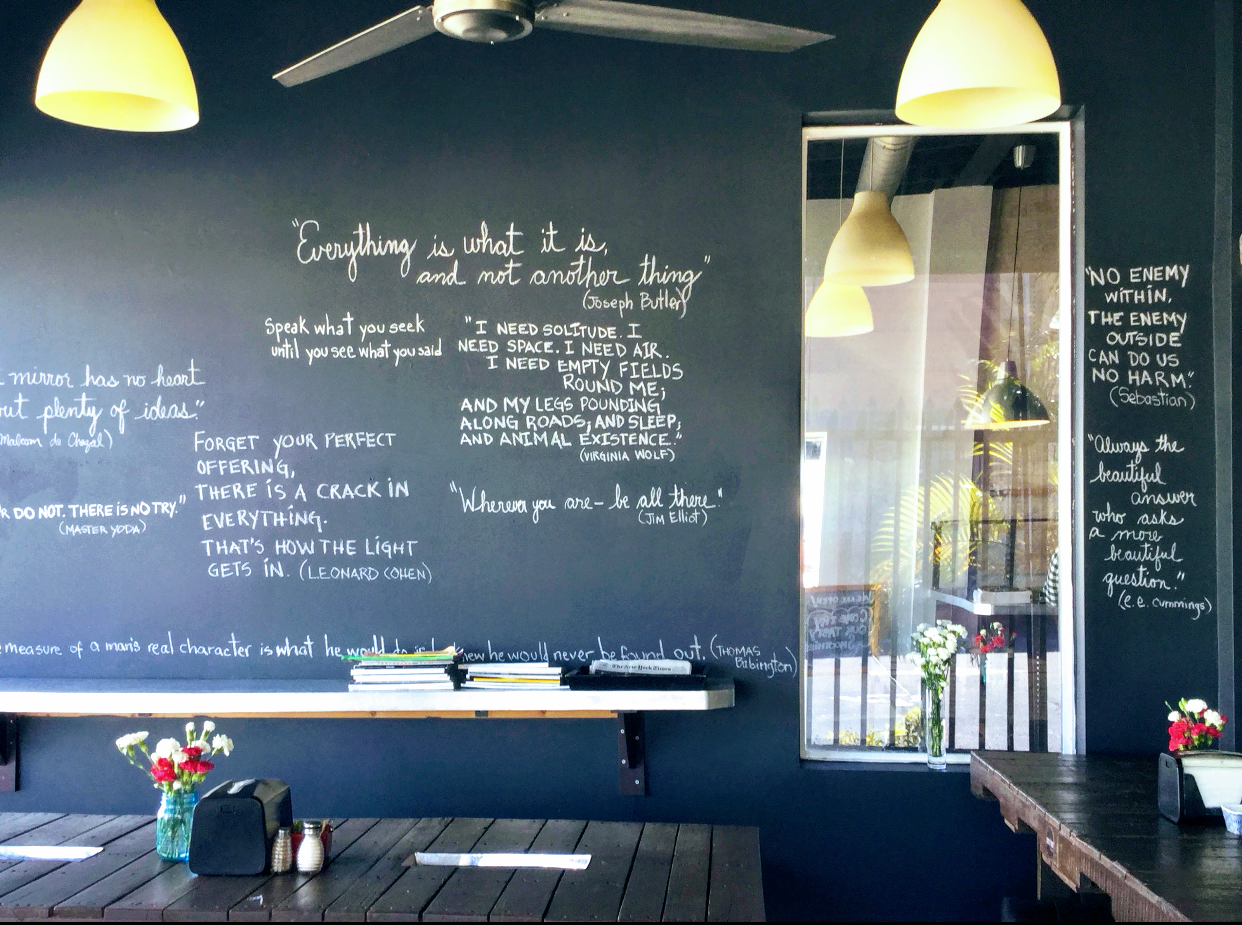 "Everything is what it is,
and not another thing"
(Joseph Butler)
Speak what you seek
until you see what you said
"I NEED SOLITUDE. I
NEED SPACE. I NEED AIR.
I NEED EMPTY FIELDS
ROUND ME;
AND MY LEGS POUNDING
ALONG ROADS; AND SLEEP;
AND ANIMAL EXISTENCE."
(VIRGINIA WOLF)
mirror has no heart
but plenty of ideas."
(Malcom de Chazal)
FORGET YOUR PERFECT
OFFERING,
THERE IS A CRACK IN
EVERYTHING.
THAT'S HOW THE LIGHT
GETS IN. (LEONARD COHEN)
DO NOT. THERE IS NO TRY."
(MASTER YODA)
"Wherever you are – be all there."
(Jim Elliot)
measure of a man's real character is what he would do if he knew he would never be found out. (THOMAS
Babington)
The New York Times
"NO ENEMY
WITHIN,
THE ENEMY
OUTSIDE
CAN DO US
NO HARM."
(Sebastian)
"Always the
beautiful
answer
who asks
a more
beautiful
question."
(e.e. cummings)